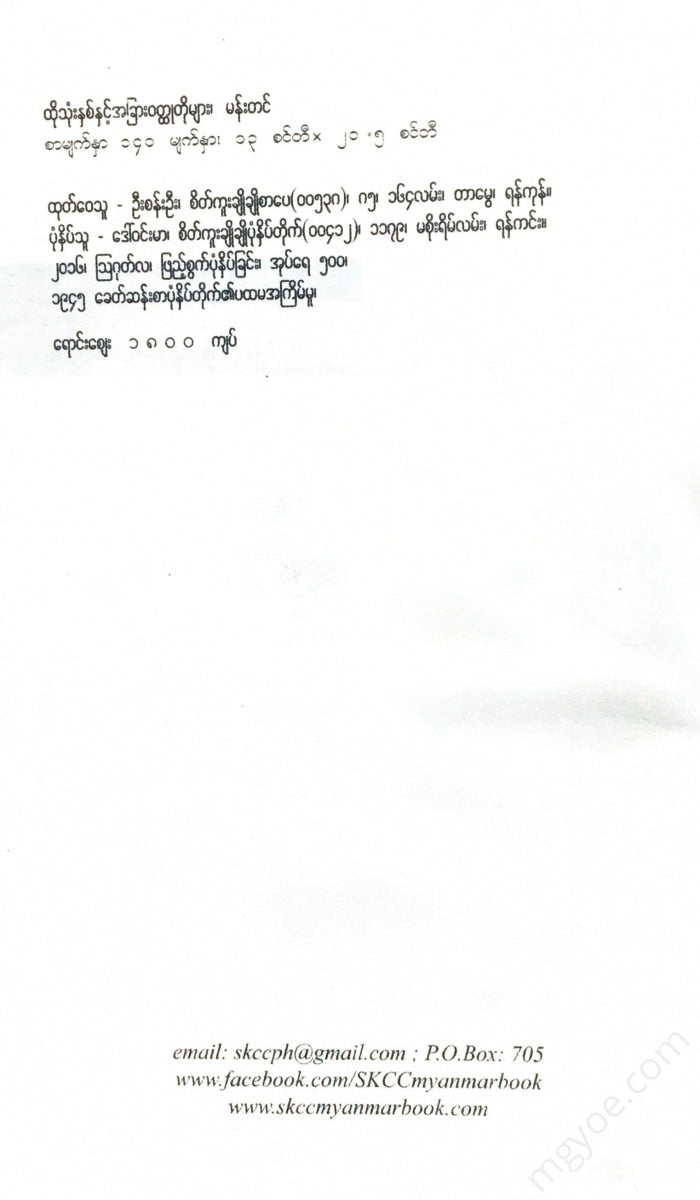 ထိုသုံးနှစ်နှင့်အခြားဝတ္ထုတိုများ၊ မန်းတင်
စာမျက်နှာ ၁၄၀ မျက်နှာ၊ ၁၃ စင်တီ× ၂၁ ·၅ စင်တီ
ထုတ်ဝေသူ - ဦးစန်းဦး၊ စိတ်ကူးချိုချိုစာပေ(၀၀၅၃၈)၊ ဂ၅၊ ၁၆၄လမ်း၊ တာမွေ၊ ရန်ကုန်။
ပုံနှိပ်သူ - ဒေါ်ဝင်းမာ၊ စိတ်ကူးချိုချိုပုံနှိပ်တိုက်(၀၀၄၁၂)၊ ၁၁၇၉၊ မစိုးရိမ်လမ်း၊ ရန်ကင်း။
၂၀၁၆၊ ဩဂုတ်လ၊ ဖြည့်စွက်ပုံနှိပ်ခြင်း၊ အုပ်ရေ ၅၀၀၊
၁၉၄၅ ခေတ်ဆန်းစာပုံနှိပ်တိုက်၏ပထမအကြိမ်မူ၊
ရောင်းဈေး ၁ ၈ ၀ ၀ ကျပ်
email: skccph@gmail.com ; P.O.Box: 705
www.facebook.com/SKCCmyanmarbook
www.skccmyanmarbook.com
mgyoe.com